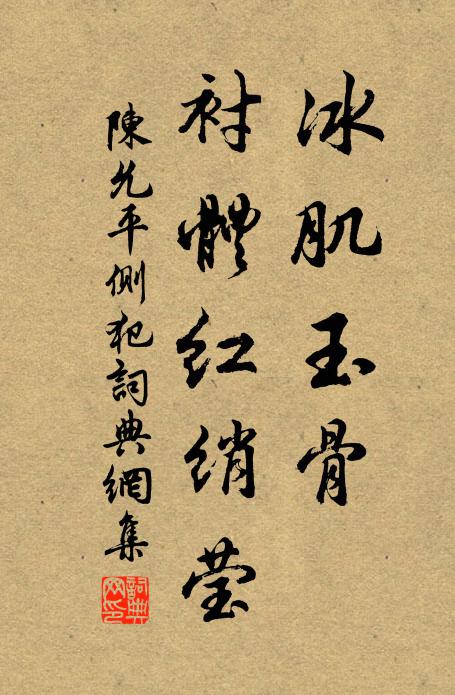 冰肌玉骨
衬體红绡莹
陳允平側犯詞典網集
詞典网印